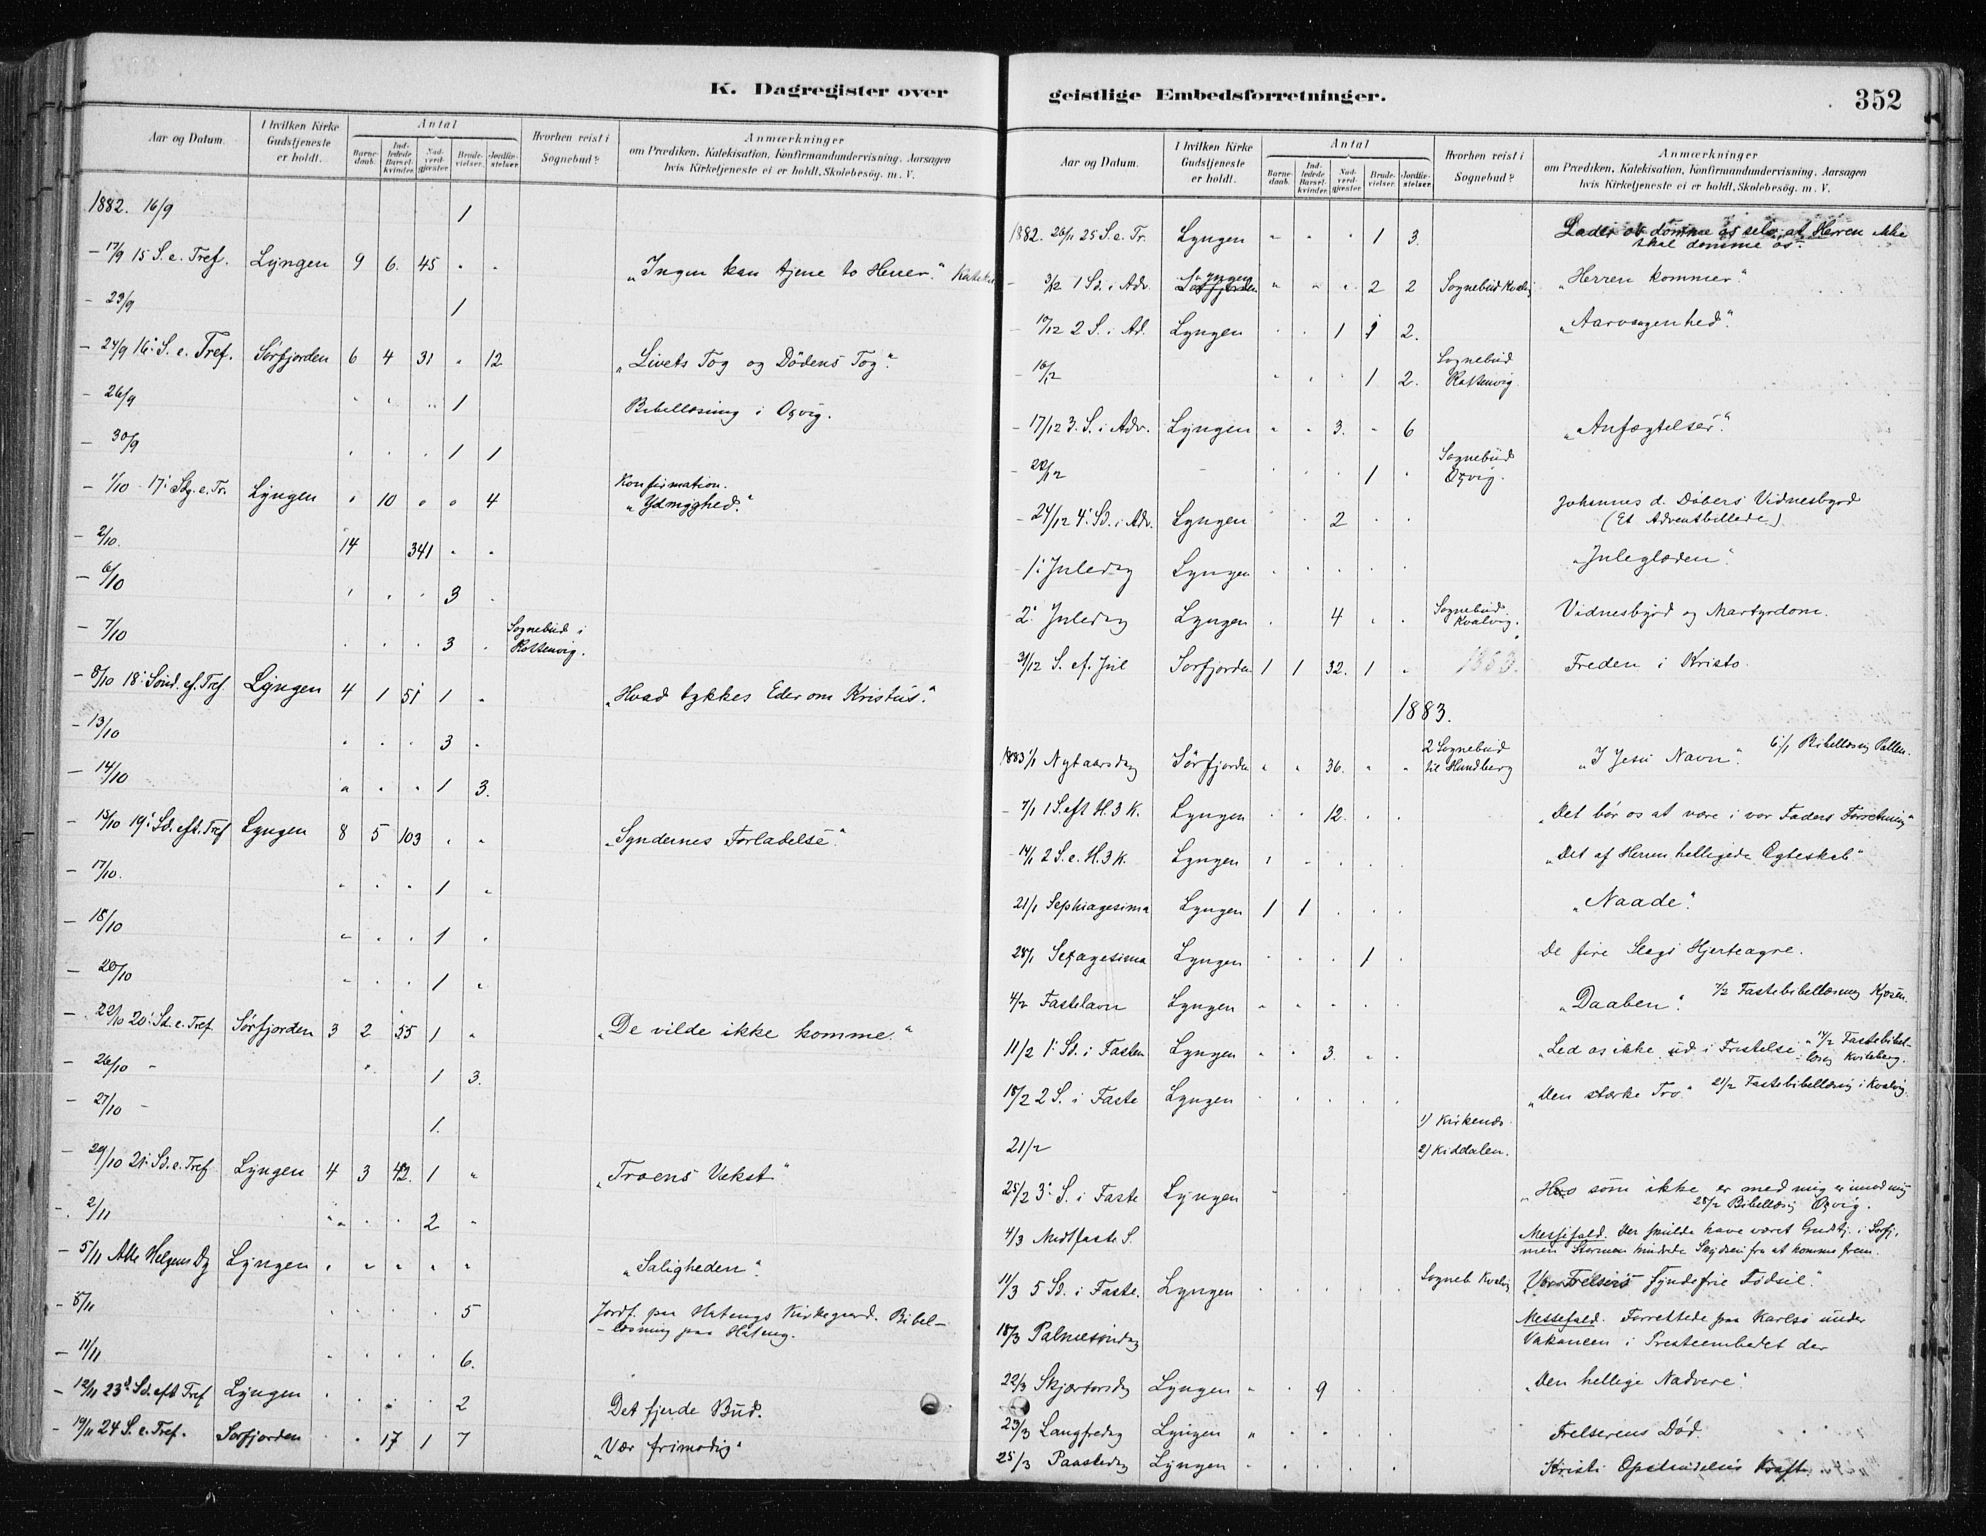 K. Dagregister over
Aar og Datum.
I hvilken Kirke Gudstjeneste er holdt.
Antal
Barne-daab.
Ind-ledede Barsel-kvinder.
Nad-verd-gjester.
Brude-vielser.
Jordfæ-stelser.
Hvorhen reist i Sognebud?
Anmærkninger
om Prædiken, Katekisation, Konfirmandundervisning, Aarsagen
hvis Kirketjeneste ei er holdt, Skolebesøg. m. V.
1882. 16/9 1
- 17/9 15 S. e. Tref. Lyngen 9 6. 45 " " „Ingen kan tjene to Herrer."
- 23/9 1
- 24/9 16: S. e. Tref. Sørfjorden 6 4 31 " 12 „Livets Tog og Dødens Tog."
- 26/9 1 Bibellæsning i Oxvig.
- 30/9 1 1
1/10 - 17: Sdg. e. Tr. Lyngen " 10 " " 4 Konfirmation. „Ydmyghed."
- 2/10. 14 341 " "
- 6/10 3
- 7/10 3 Sognebud i Rottenvig.
- 8/10 18: Sønd. ef. Tref Lyngen 4 1 51 1 " „Hvad tykkes Eder om Kristus."
- 13/10 3
- 14/10 1 3.
- 15/10 19: Sd. eft. Tref Lyngen 8 5 103 " " „Syndernes Forladelse."
- 17/10. 1
- 18/10 1
- 20/10 1
- 22/10 20: Sd. e. Tref Sørfjorden 3 2 55 1 " „De vilde ikke komme."
- 26/10 - 1 3.
- 27/10 - 1.
- 29/10 21: Sd. e. Tref Lyngen 4 3 42. 1 " „Troens Vækst"
- 2/11 2
- 5/11 Alle Helgens Dg Lyngen " " " " " „Saligheden".
- 8/11 5 Jordf. paa Hatengs Kirkegaard. Bibel-
-læsning paa Hateng.
- 11/11 6.
- 12/11 23d Sd. eft Tref Lyngen 2 Det fjerde Bud.
- 19/11 24 S. e. Tref. Sørfjorden 17 1 7 „Vær frimodig"
geistlige Embedsforretninger.
352
Aar og Datum.
I hvilken Kirke Gudstjeneste er holdt.
Antal
Barne-daab.
Ind-ledede Barsel-kvinder.
Nad-verd-gjester.
Brude-vielser.
Jordfæ-stelser.
Hvorhen reist i Sognebud?
Anmærkninger
om Prædiken, Katekisation, Konfirmandundervisning, Aarsagen
hvis Kirketjeneste ei er holdt, Skolebesøg. m. V.
1882. 26/11 25 S. e. Tr. Lyngen " " " 1 3. Lader os dømme os selv, at Herren ikke
skal dømme os.
- 3/12 1 Sd. i Adv. Lyngen " " " 2 2 Sognebud Kvalvig „Herren kommer."
- 10/12 2 S. i Ad. Lyngen 1 1 2. „Aarvaagenhed".
- 16/12 1 2. Sognebud Rottenvig.
- 17/12 3. S. i Adv. Lyngen " " 3. " 6 „Anfægtelser."
- 22/12 1 Sognebud Oxvig.
- 24/12 4: Sd. i Adv. Lyngen 2 Johannes d. Døbers Vidnesbyrd
(Et Adventbillede)
- 1: Juledag Lyngen „Juleglæden".
- 2: Juledag Lyngen 4 Sognebud Kvalvig. Vidnesbyrd og Martyrdom.
- 31/12 S. ef. Jul Sørfjorden 1 1 32. 1 " 1883. Freden i Kristo.
1883.
1883 1/1 Nytaarsdag Sørfjorden " " 36. " " 2 Sognebud til Hundberg „I Jesu Navn". 6/1 Bibellæsning Pollen.
- 7/1 1 S. eft H. 3 K. Lyngen 12. „Det bør os at være i vor Faders Forretning"
- 14/1 2 S. e. H. 3 K. Lyngen „Det af Herren helligede Ægteskab."
21/1 Septuagesima Lyngen 1 1 „Naade".
28/1 Sexagesima Lyngen 1 De fire Slags Hjerteagre.
4/2 Fastelavn Lyngen „Daaben". 7/2 Fastebibellæsning Kjosen.
11/2 1: Sd. i Fasten Lyngen " " 3. „Led os ikke ud i Fristelse" 14/2 Fastebibel-
læsn Kvileberg.
18/2 2 S. i Faste Lyngen „Den stærke Tro." 21/2 Fastebibellæsning i Kvalvig
21/2 1) Kirkenæs 2) Kiddalen.
25/2 3: S. i Faste Lyngen „Hvo som ikke er med mig er imod mig
28/2 Bibellæsn Oxvig.
4/3 Midtfaste S. Messefald. Der skulde have været Gudstj. i Sørfj.
men Stormen hindrede Skydsen fra at komme frem.
11/3 5 Sd. i Faste. Lyngen Sogneb Kvalvig Vor Frelsers syndefrie Fødsel."
18/3 Palmesøndag Messefald. Forrettede paa Karlsø under
Vakancen i Presteembedet der
22/3 Skjærtorsdag Lyngen " 9 „Den hellige Nadvere".
23/3 Langfredag Lyngen Frelserens Død.
25/3 Paaskedag Lyngen Kristi Opstandelses Kraft